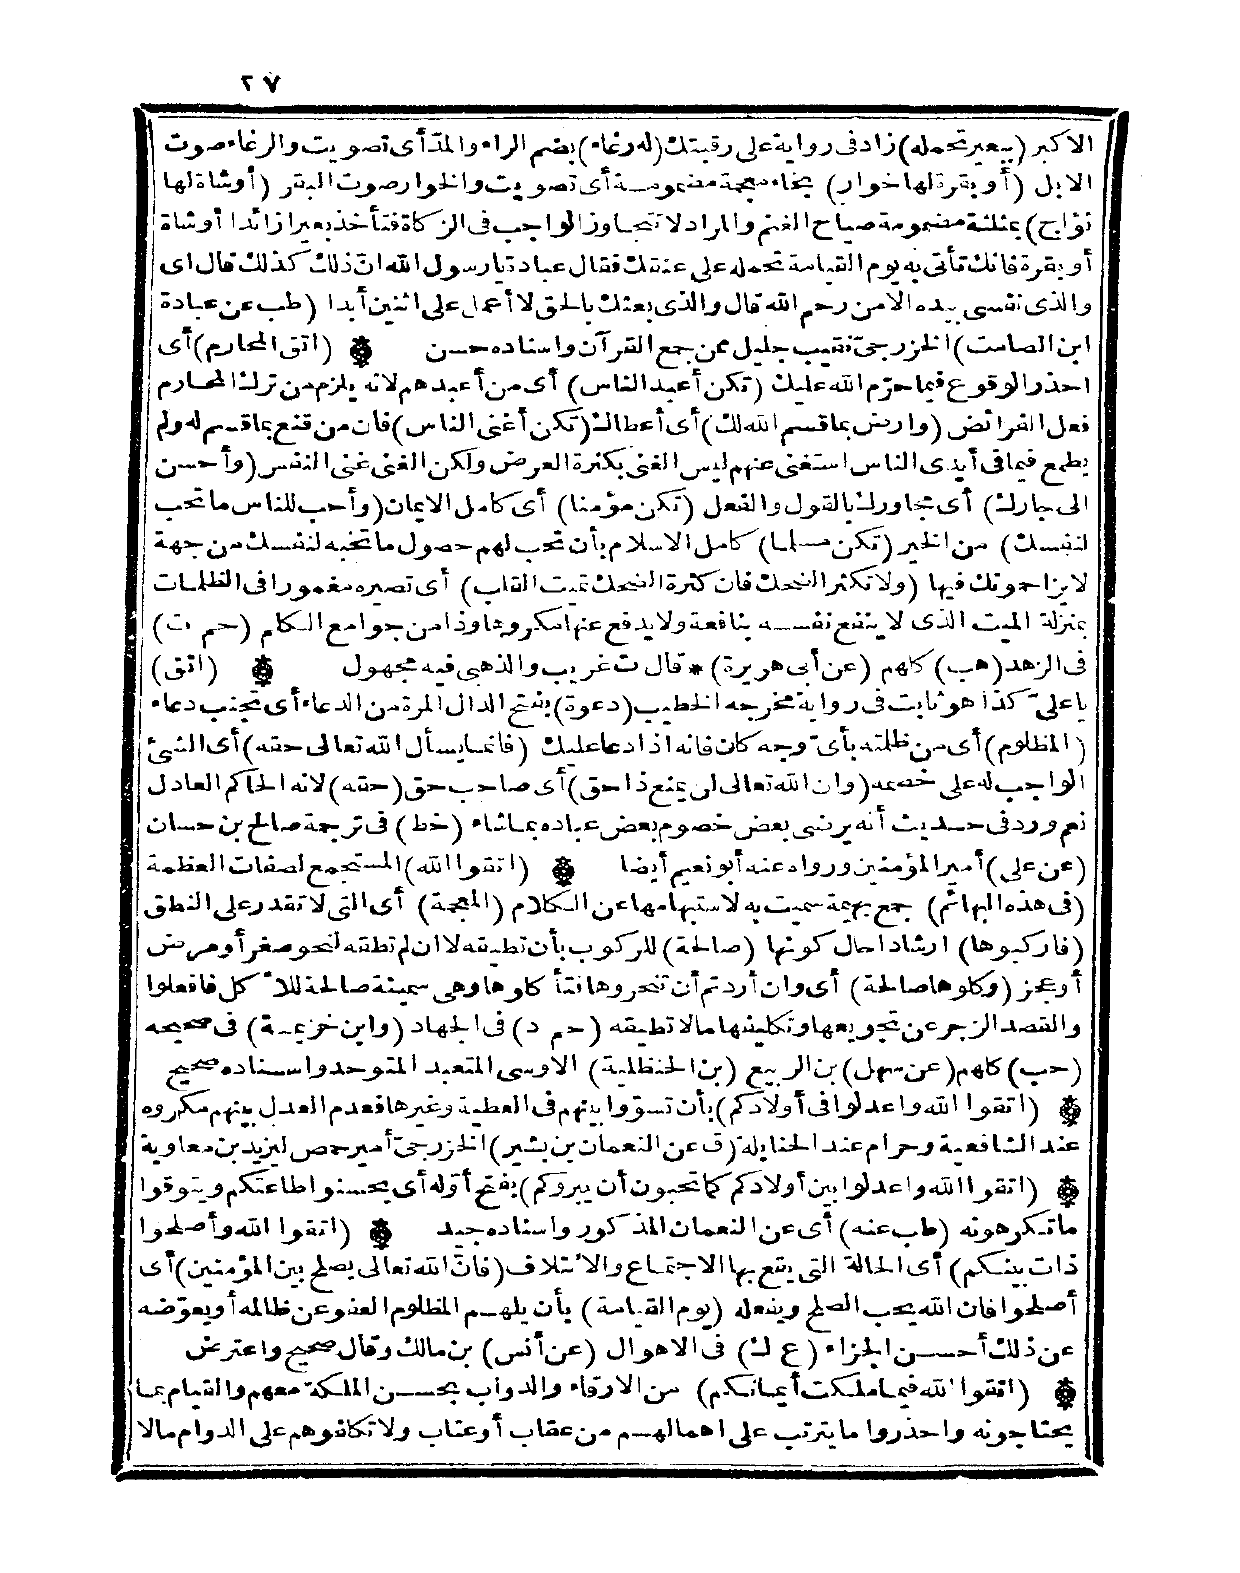 ٢٧
الاكبر (ببعير تحمله) زاد فى رواية على رقبتك (له رغاء) بضم الراء والمد أى تصويت والرغاء صوت
الابل (أو بقرة لها خوار) بخاء معجمة مضمومة أى تصويت والخوار صوت البقر (أو شاة لها
ثؤاج) بمثلثة مضمومة صياح الغنم والمراد لا تتجاوز الواجب فى الزكاة فتأخذ بعيرا زائدا أو شاة
أو بقرة فانك تأتى به يوم القيامة تحمله على عنقك فقال عبادة يا رسول الله ان ذلك كذلك قال اى
والذى نفسى بيده الا من رحم الله قال والذى بعثك بالحق لا أعمل على اثنين أبدا (طب عن عبادة
ابن الصامت) الخزرجىّ نقيب جليل ممن جمع القرآن واسناده حسن (اتق المحارم) أى
احذر الوقوع فيما حرّم الله عليك (تكن أعبد الناس) أى من أعبدهم لانه يلزم من ترك المحارم
فعل الفرائض (وارض بما قسم الله لك) أى أعطاك (تكن أغنى الناس) فان من قنع بما قسم له ولم
يطمع فيما فى أيدى الناس استغنى عنهم ليس الغنى بكثرة العرض ولكن الغنى غنى النفس (وأحسن
الى جارك) أى مجاورك بالقول والفعل (تكن مؤمنا) أى كامل الايمان (وأحب للناس ما تحب
لنفسك) من الخير (تكن مسلما) كامل الاسلام بأن تحب لهم حصول ما تحبه لنفسك من جهة
لا يزاحمونك فيها (ولا تكثر الضحك فان كثرة الضحك تميت القلب) أى تصيره مغمورا فى الظلمات
بمنزلة الميت الذى لا ينفع نفسه بنافعة ولا يدفع عنها مكروها وذا من جوامع الكلم (حم ت)
فى الزهد (هب) كلهم (عن أبى هريرة) * قال ت غريب والذهبى فيه مجهول (اتق)
يا علىّ كذا هو ثابت فى رواية مخرجه الخطيب (دعوة) بفتح الدال المرة من الدعاء أى تجنب دعاء
(المظلوم) أى من ظلمته بأىّ وجه كان فانه اذا دعا عليك (فانما يسأل الله تعالى حقه) أى الشئ
الواجب له على خصمه (وان الله تعالى لن يمنع ذا حق) أى صاحب حق (حقه) لانه الحاكم العادل
نعم ورد فى حديث أنه يرضى بعض خصوم بعض عباده بما شاء (خط) فى ترجمة صالح بن حسان
(عن على) أمير المؤمنين ورواه عنه أبو نعيم أيضا (اتقوا الله) المستجمع لصفات العظمة
(فى هذه البهائم) جمع بهيمة سميت به لاستبهامها عن الكلام (المعجمة) أى التى لا تقدر على النطق
(فاركبوها) ارشادا حال كونها (صالحة) للركوب بأن تطيقه لا ان لم تطقه لنحو صغر أو مرض
أو عجز (وكلوها صالحة) أى وان أردتم أن تنحروها فتأكلوها وهى سمينة صالحة للاكل فافعلوا
والقصد الزجر عن تجويعها وتكليفها ما لا تطيقه (حم د) فى الجهاد (وابن خزيمة) فى صحيحه
(حب) كلهم (عن سهل) بن الربيع (بن الحنظلية) الاوسى المتعبد المتوحد واسناده صحيح
(اتقوا الله واعدلوا فى أولادكم) بأن تسوّوا بينهم فى العطية وغيرها فعدم العدل بينهم مكروه
عند الشافعية وحرام عند الحنابلة (ق عن النعمان بن بشير) الخزرجىّ أمير حمص ليزيد بن معاوية
(اتقوا الله واعدلوا بين أولادكم كما تحبون أن يبروكم) بفتح أوله أى يحسنوا طاعتكم ويتوقوا
ما تكرهونه (طب عنه) أى عن النعمان المذكور واسناده جيد (اتقوا الله وأصلحوا
ذات بينكم) أى الحالة التى يقع بها الاجتماع والائتلاف (فانّ الله تعالى يصلح بين المؤمنين) أى
أصلحوا فان الله يحب الصلح ويفعله (يوم القيامة) بأن يلهم المظلوم العفو عن ظالمه أو يعوّضه
عن ذلك أحسن الجزاء (ع ك) فى الاهوال (عن أنس) بن مالك وقال صحيح واعترض
(اتقوا الله فيما ملكت أيمانكم) من الارقاء والدواب بحسن الملكة معهم والقيام بما
يحتاجونه واحذروا ما يترتب على اهمالهم من عقاب أو عتاب ولا تكلفوهم على الدوام ما لا